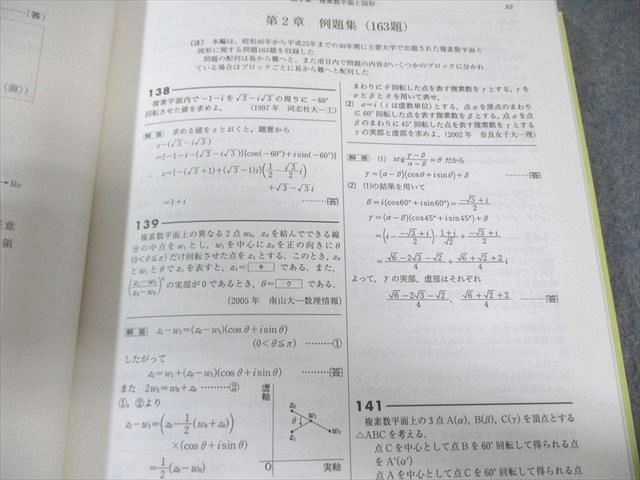 〔答〕
前)〕
Re
意
領
複素数平面と図形
83
第2章 例題集(163題)
〔注〕 本編は,昭和46年から平成25年までの40年間に主要大学で出題された複素数平面と
図形に関する問題163題を収録した.
問題の配列は易から難へと,また項目内で問題の内容がいくつかのブロックに分かれ
ている場合はブロックごとに易から難へと配列した.
138
複素平面内で−1−iを√3−i√3の周りに−60°
回転させた値を求めよ.
(1997年 同志社大―工)
解答 求める値をzとおくと,題意から
z−(√3−i√3)
={−1−i−(√3−i√3)}{cos(−60°)+isin(−60°)}
∴ z={−(√3+1)+(√3−1)i}(1/2−√3/2 i)
+√3−√3i
=1+i ………〔答〕
139
複素数平面上の異なる2点w₀, z₀を結んでできる線
分の中点をw₁とし,w₁を中心にz₀を正の向きにθ
(0<θ≦π)だけ回転させた点をz₁とする.このとき,z₀
とw₁とθでz₁を表すと,z₁=キ である.また,
の実部が0であるとき,θ=ク である.
(2005年 南山大―数理情報)
解答 z₁−w₁=(z₀−w₁)(cosθ+isinθ)
(0<θ≦π) ………①
したがって
z₁=w₁+(z₀−w₁)(cosθ+isinθ) ………〔答〕
また 2w₁=w₀+z₀ ………②
①,②より
z₁−w₁=(z₀−1/2(w₀+z₀))
×(cosθ+isinθ)
=1/2(z₀−w₀)
虚軸
z₀
w₁
z₁
w₀
O
実軸
まわりにθ回転した点を表す複素数をγとする.γを
αとβとθを用いて表せ.
(2) α=i(iは虚数単位)とする.点αを原点のまわり
に60°回転した点を表す複素数をβとする.点αを点
βのまわりに45°回転した点を表す複素数をγとする
γの実部と虚部を求めよ.(2002年 奈良女子大―理)
解答 (1) arg (γ−β)/(α−β)=θだから
γ=(α−β)(cosθ+isinθ)+β ………〔答〕
(2) (1)の結果を用いて
β=i(cos60°+isin60°)=(−√3+i)/2
γ=(α−β)(cos45°+isin45°)+β
=(i−(−√3+i)/2)・(1+i)/√2+(−√3+i)/2
=(√6−2√3−√2)/4+(√6+√2+2)/4 i
よって,γの実部,虚部はそれぞれ
(√6−2√3−√2)/4, (√6+√2+2)/4 ………〔答〕
141
複素数平面上の3点A(α), B(β), C(γ)を頂点とする
△ABCを考える.
点Cを中心として点Bを60°回転して得られる点
をA'(α')
点Aを中心として点Cを60°回転して得られる点